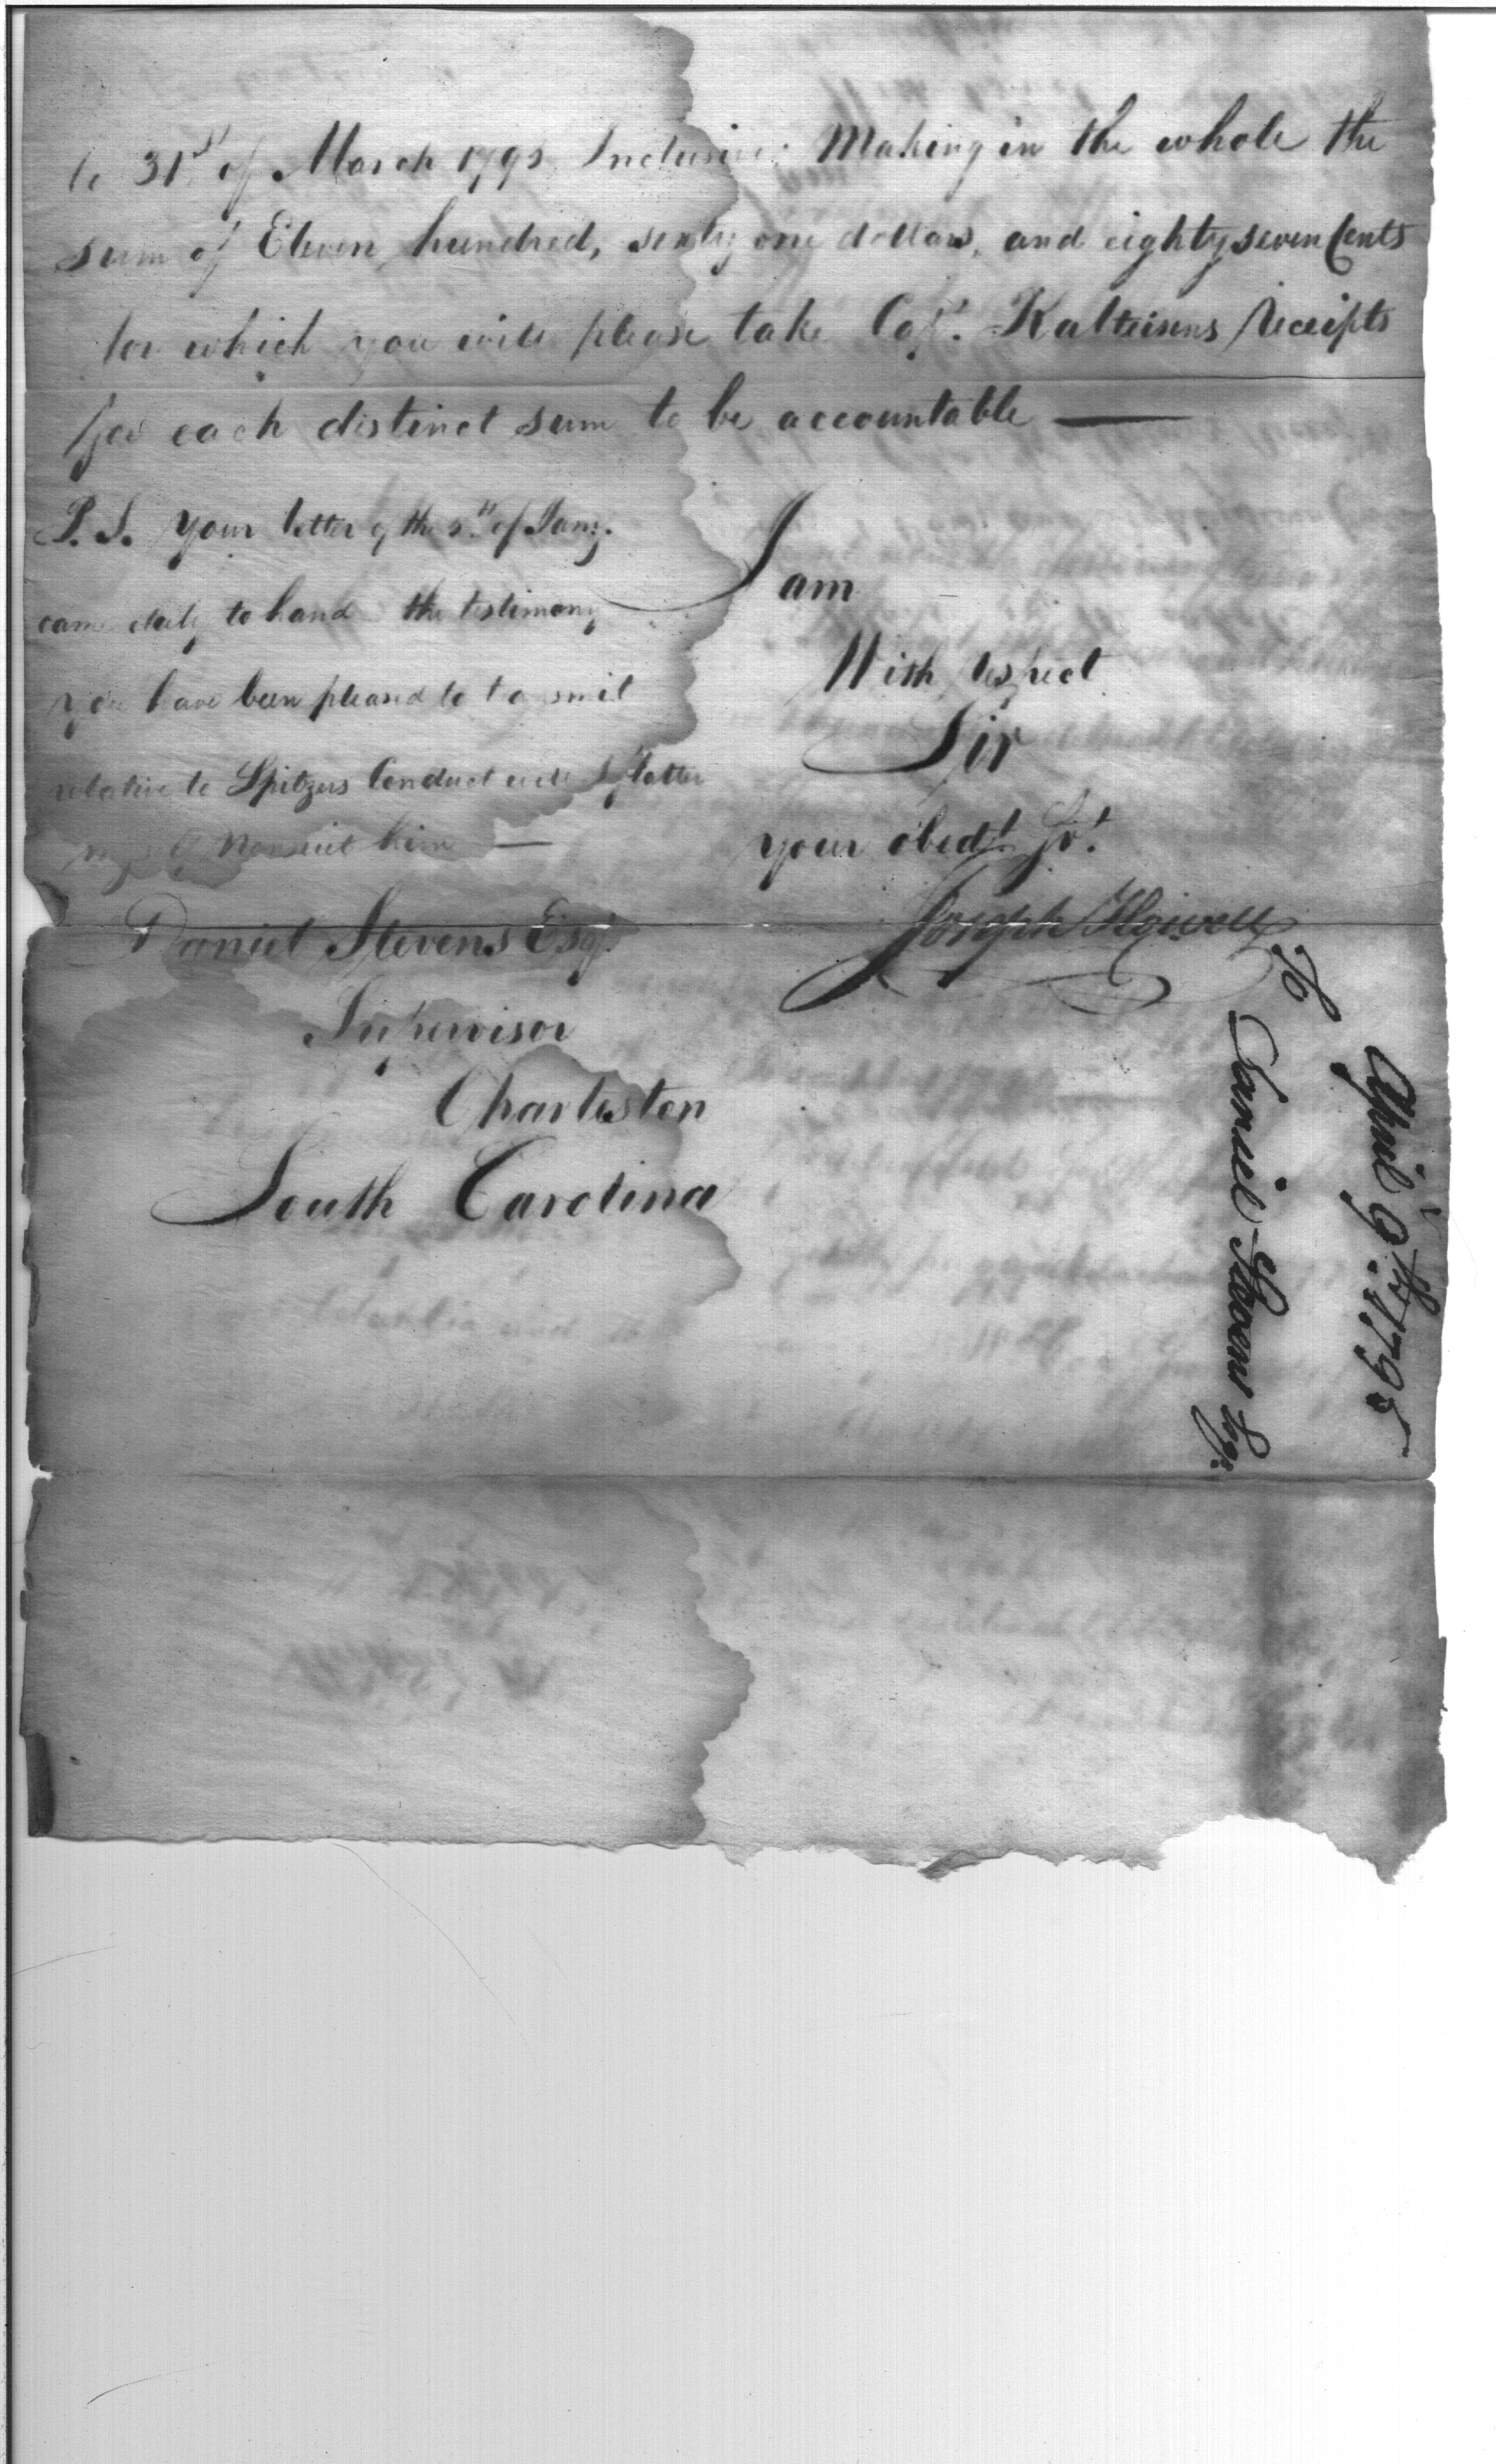 to 31st of March 1795 Inclusive. Making in the whole the
sum of Eleven hundred, sixty one dollars, and eighty seven Cents
for which you will please take Capt. Kalteisens receipts
for each distinct sum to be accountable —
I am
With respect
Sir
your obedt. Sr.t
Joseph Howell
P.S. Your letter of the 5th of Jany.
came duly to hand the testimony
you have been pleased to transmit
relative to Spitzers Conduct will I flatter
myself nonsuit him —
Daniel Stevens Esqr.
Supervisor
Charleston
South Carolina
To
Daniel Stevens Esqr.
April 9th. 1795